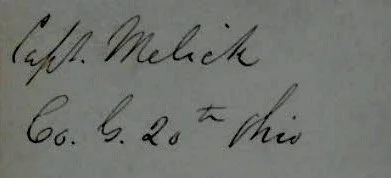 Capt. Melick
Co. G. 20th Ohio